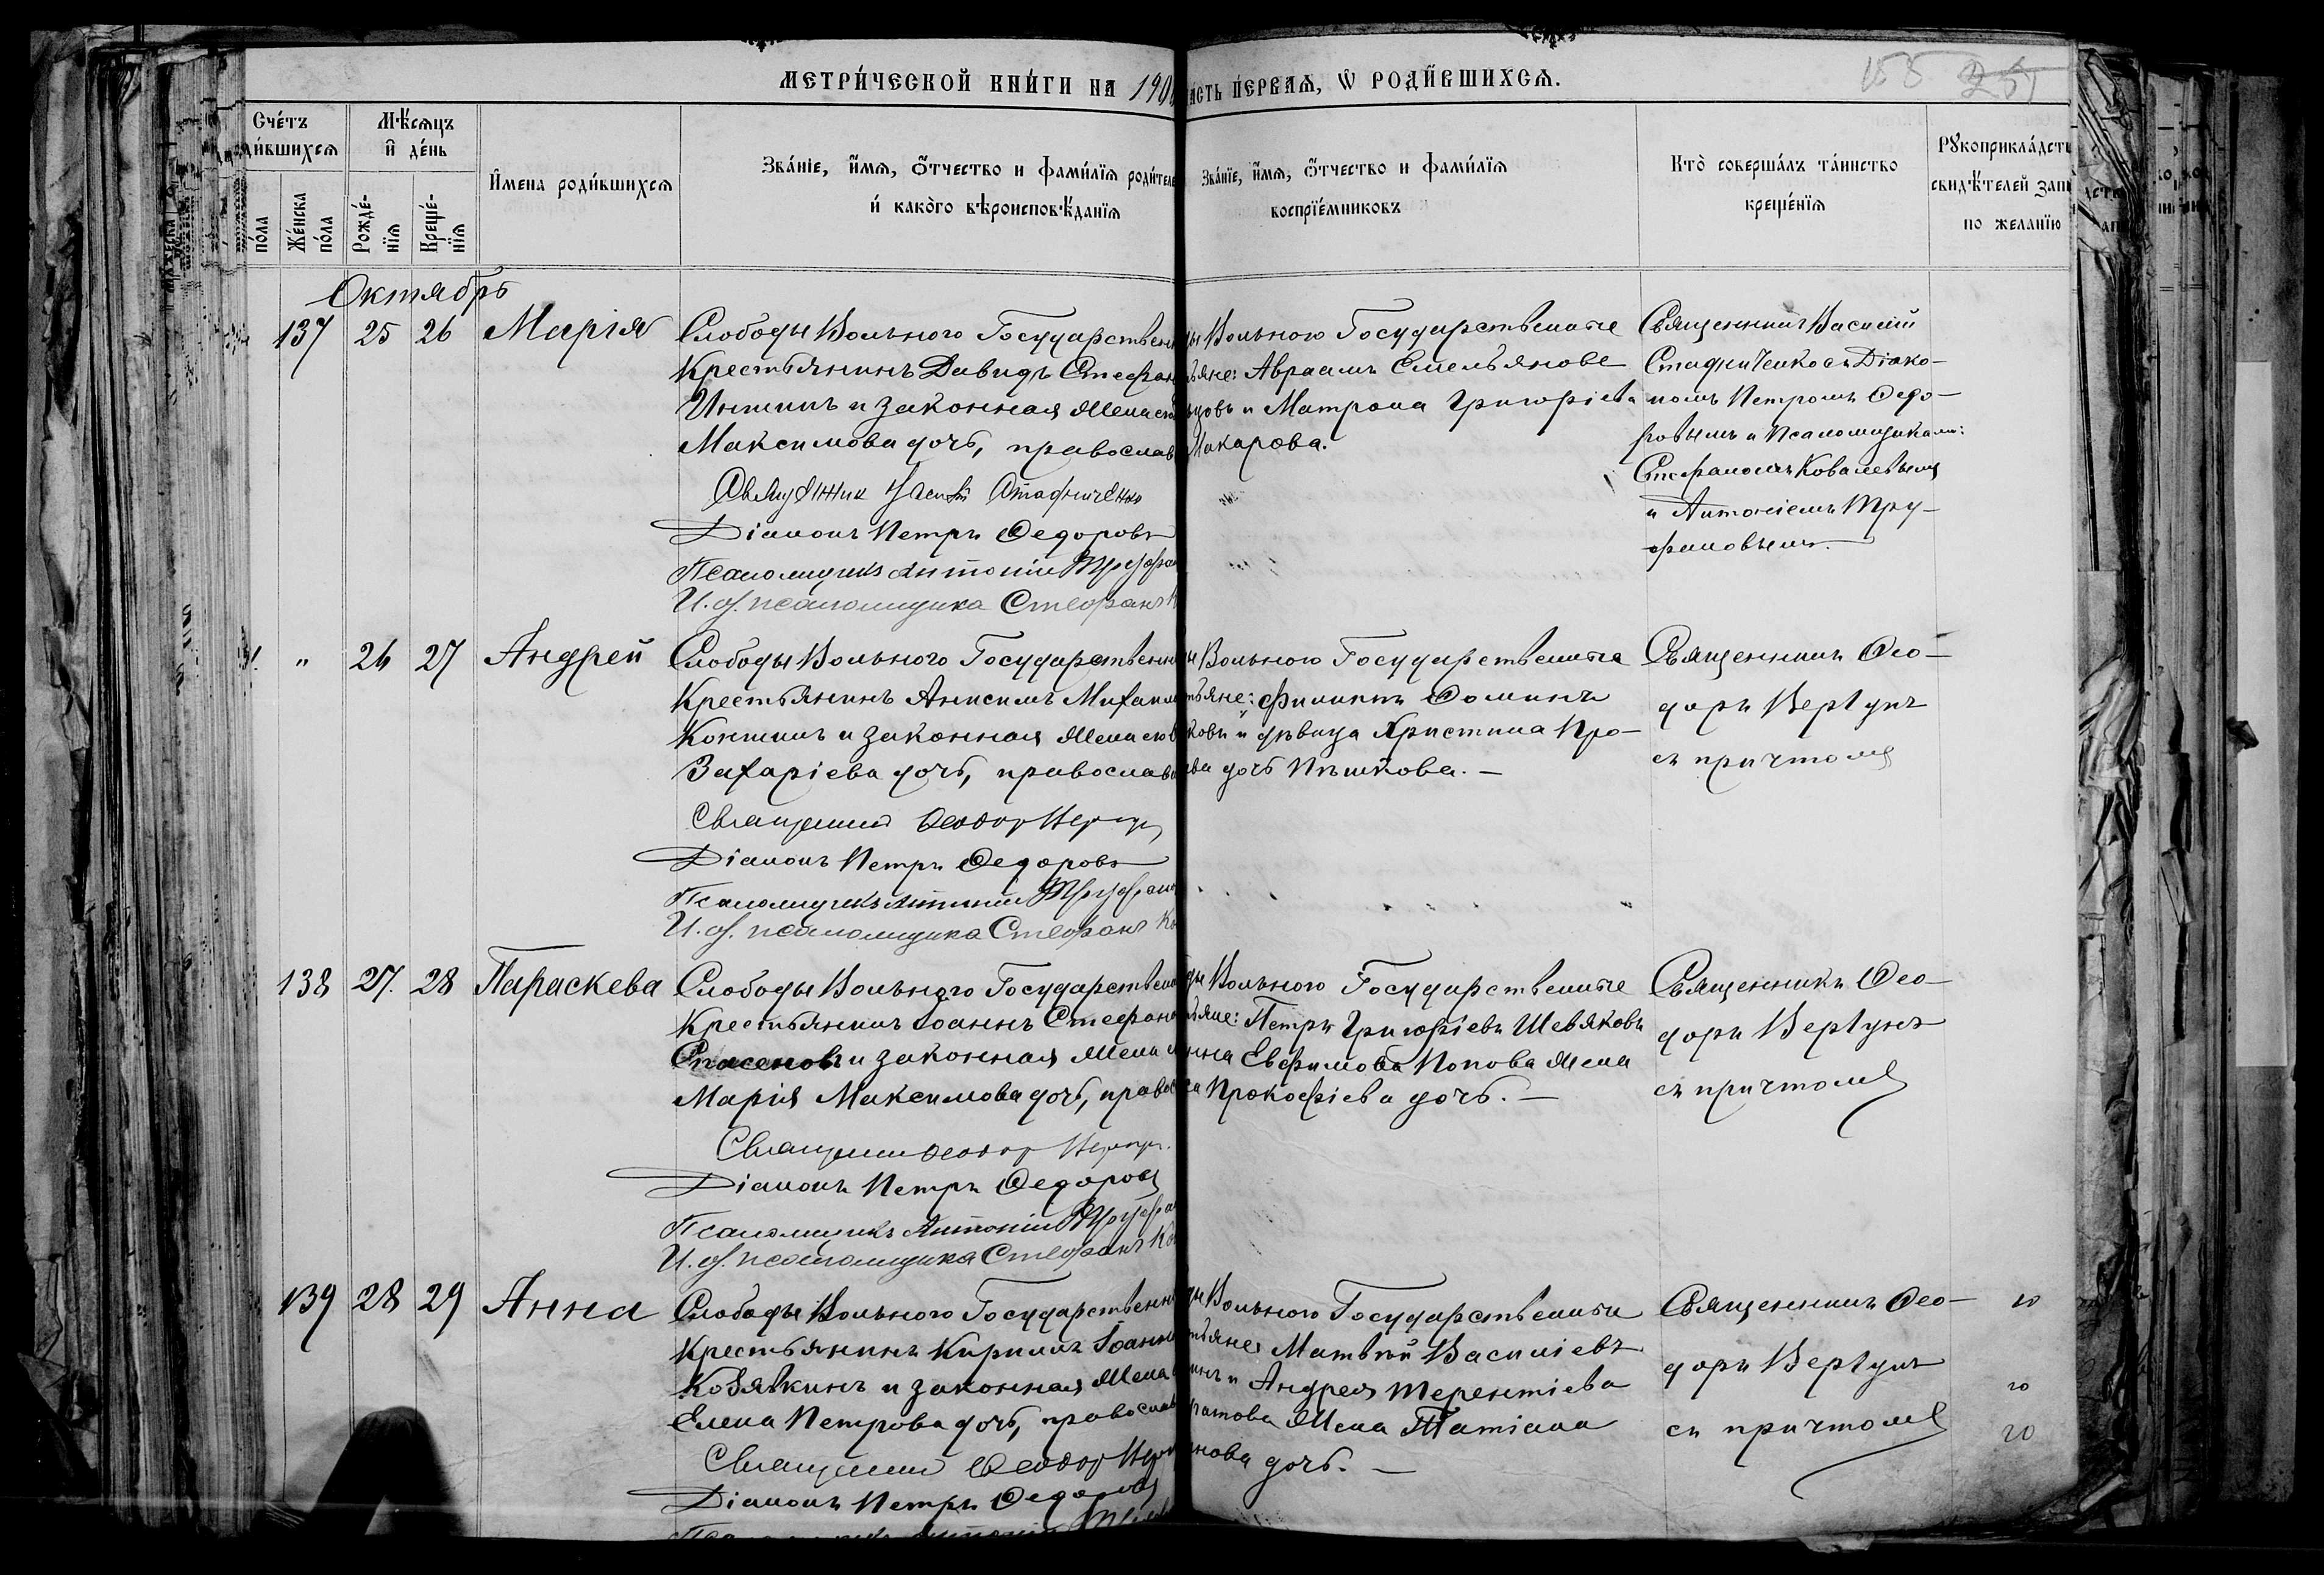 МЕТРИ́ЧЕСКОЙ КНИ́ГИ НА 190
АСТЬ ПЕ́РВАЯ, Ѡ РОДИ́ВШИХСЯ.
155
Сче́тъ
и́вшихся
по́ла
Же́нска по́ла
Мѣ́сяцъ
и҆ де́нь
Рожде́-нїя
Креще́-нїя
И҆мена роди́вшихся
Зва́нїе, и҆́мя, ѻ҆́тчество и фами́лїя родите
и҆ како́гѡ вѣроисповѣ́данїя
Зва́нїе, и҆́мя, ѻ҆́тчество и фами́лїя
воспрїе́мниковъ
Кто̀ соверша́лъ та́инство
креще́нїя
Рꙋкоприкла́дст
свидѣ́телей зап
по желанїю
Октябрь
137 25 26 Марія
Слободы Вольного Государствен
Крестьянинъ Давидъ Стефан
и законная жена
Максимова дочь, православ
Священник Стадниченко
Діаконъ Петръ Ѳедоровъ
Псаломщикъ Антоній Труфан
И. об. псаломщика Стефанъ К
ды Вольного Государственные
ьяне: Авраамъ Емельянове
и Матрона Григоріева
Макарова.
Священникъ Василій
Стадниченко съ Діако-
номъ Петромъ Ѳедо-
ровымъ и псаломщиками:
Стефаномъ Ковалевымъ
и Антоніемъ Тру-
фановымъ.
" 26 27 Андрей
Слободы Вольного Государственн
Крестьянинъ Анисимъ Михаил
Коншинъ и законная жена
Захаріева дочь, православ
Священникъ Ѳеодоръ
Діаконъ Петръ Ѳедоровъ
Псаломщикъ Антоній Труфано
И. об. псаломщика Стефанъ Ко
ы Вольного Государственные
тьяне: Филиппъ Ѳоминъ
ковъ и дѣвица Христина Про-
ва дочь Пѣшкова. —
Священникъ Ѳео-
доръ Вергунъ
съ причтомъ
138 27. 28 Параскева
Слободы Вольного Государствен
Крестьянинъ Іоаннъ Стефан
и законная жена
Марія Максимова дочь, право
Священникъ Ѳеодоръ
Діаконъ Петръ Ѳедоровъ
Псаломщикъ Антоній Труфа
И. об. псаломщика Стефанъ Ко
ды Вольного Государственные
ьяне: Петръ Григоріевъ Шевяковъ
Евфимова Попова жена
са Прокофіева дочь. —
Священникъ Ѳео-
доръ Вергунъ
съ причтомъ
139 28 29 Анна
Слободы Вольного Государственн
Крестьянинъ Кириллъ Іоанн
Козявкинъ и законная жена
Елена Петрова дочь, православ
Священникъ Ѳеодоръ
Діаконъ Петръ Ѳедоровъ
ды Вольного Государственные
тьяне: Матвѣй Васильевъ
инъ и Андрея Терентіева
ратова жена Татіана
нова дочь. —
Священникъ Ѳео-
доръ Вергунъ
съ причтомъ
20